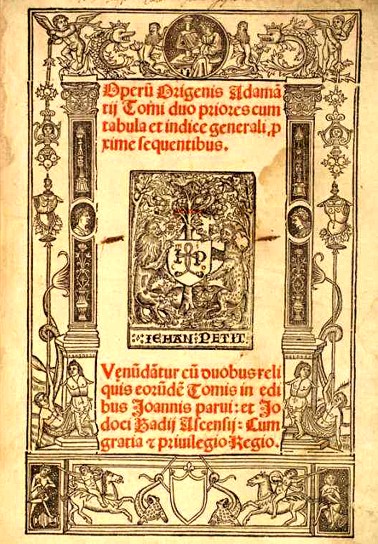 Operū Origenis Adamā
tij Tomi duo priores cum
tabula et indice generali, p
xime sequentibus.
I P
IEHAN PETIT
Venūdātur cū duobus reli
quis eorūdē Tomis in edi
bus Joannis parui: et Jo
doci Badij Ascensij: Cum
gratia ⁊ priuilegio Regio.